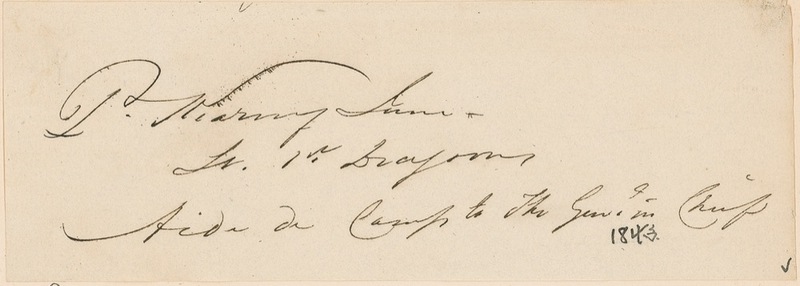 P. Kearny Jun.
Lt. 1st Dragoons
Aide de Camp to the Genl in Chief
1843.